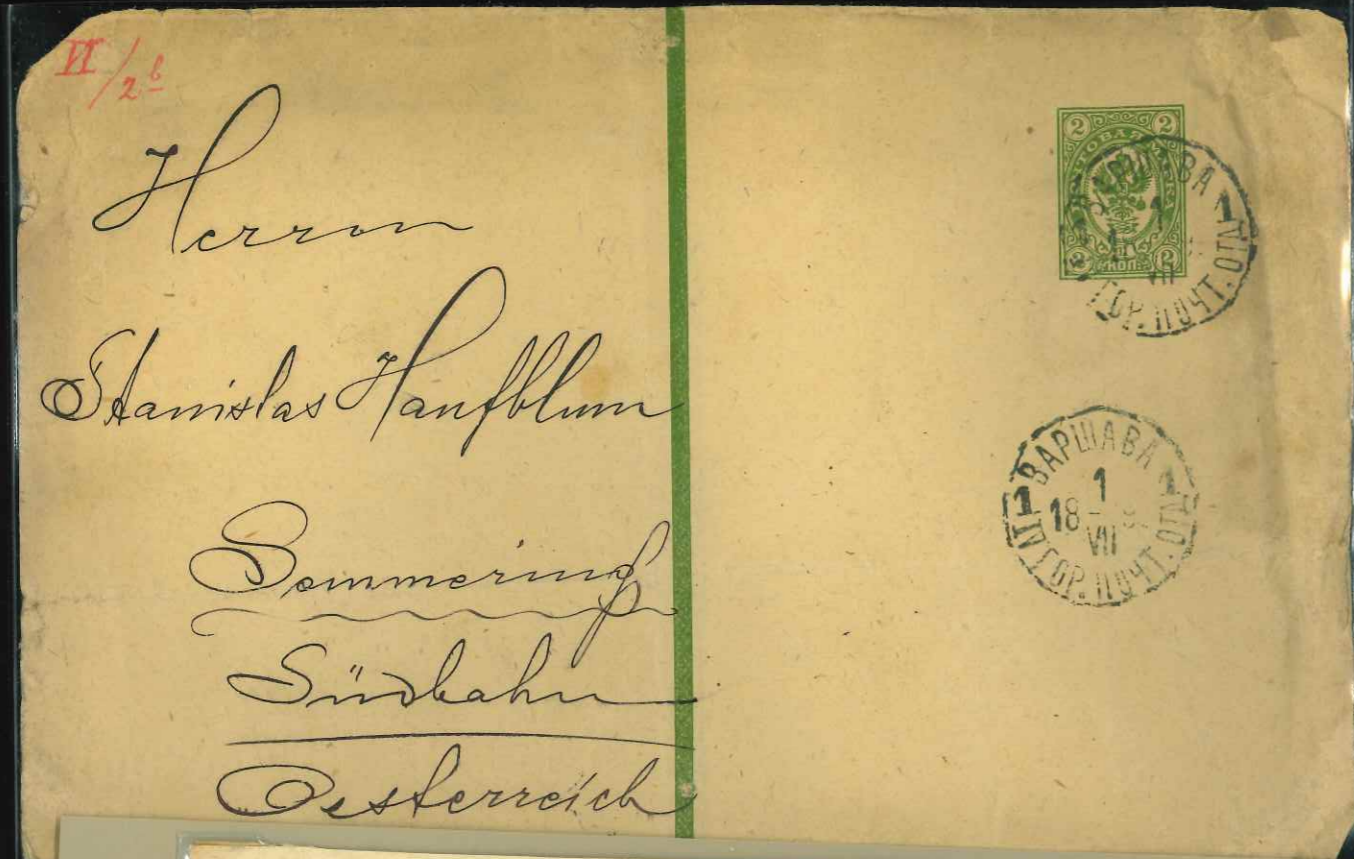 VI/2 b
Herrn
Stanislas Hanfblum
Semmering
Südbahn
Oesterreich
2 2
ПОЧТОВАЯ МАРКА
2 КОП. 2
ВАРШАВА
1
VII
ГОР. ПОЧТ. ОТД
1
ВАРШАВА
1 1
1
18
VII
ГОР. ПОЧТ. ОТД